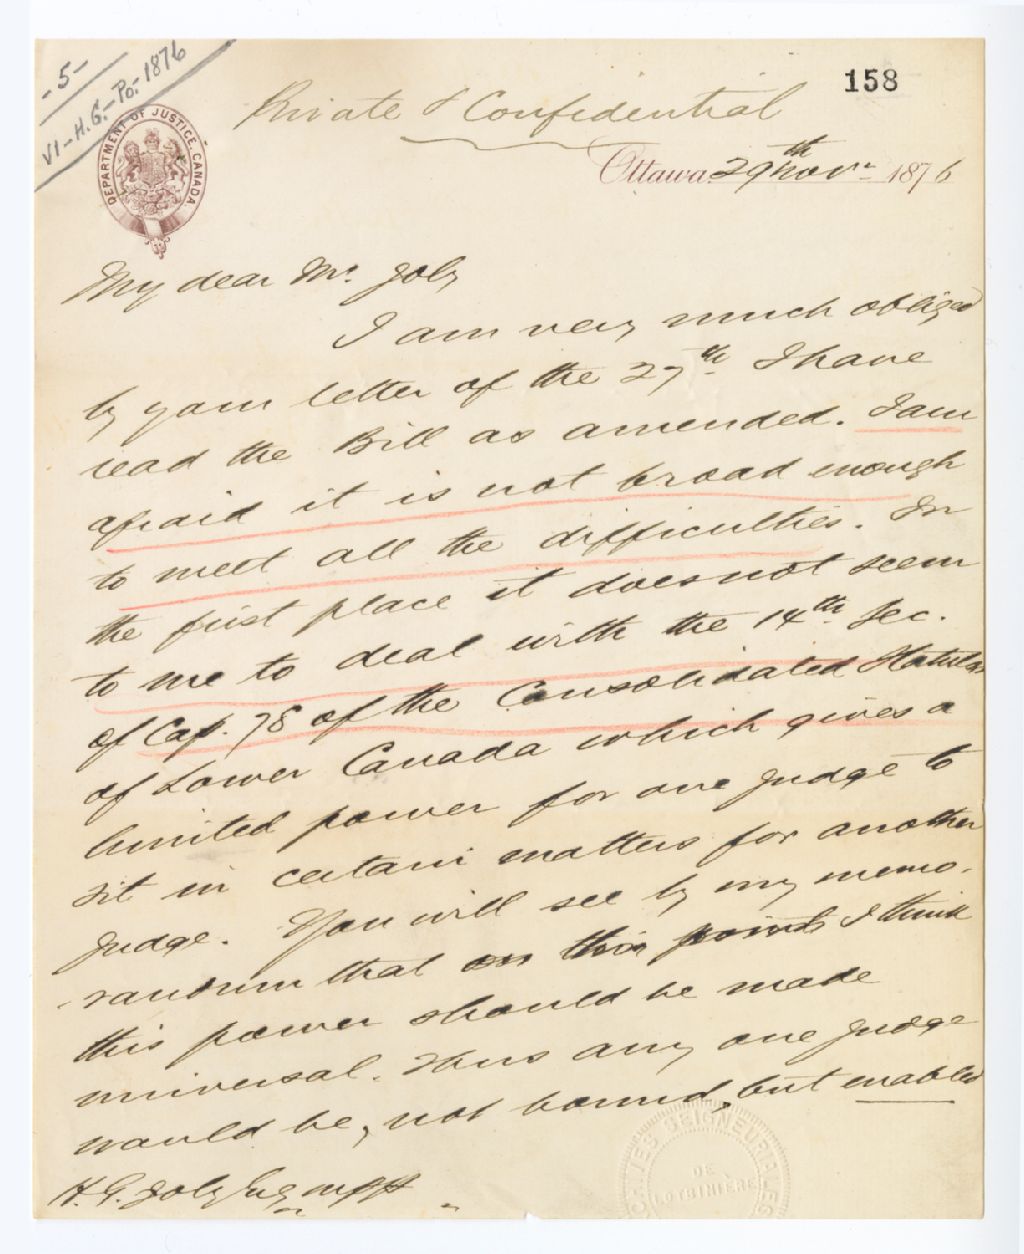 -5-
VI-H.G.-Po.-1876
158
DEPARTMENT OF JUSTICE, CANADA.
Private & Confidential
Ottawa 29th Novr. 1876
My dear Mr. Joly
I am very much obliged
by your letter of the 27th. I have
read the Bill as amended. I am
afraid it is not broad enough
to meet all the difficulties. In
the first place it does not seem
to me to deal with the 14th Sec.
of Cap. 78 of the Consolidated Statutes
of Lower Canada which gives a
limited power for one Judge to
sit in certain matters for another
Judge. You will see by my memo-
randum that on this point I think
this power should be made
universal. Thus any one Judge
would be, not bound, but enabled
H. G. Joly Esq
SEIGNEURIALES
DE
LOTBINIÈRE